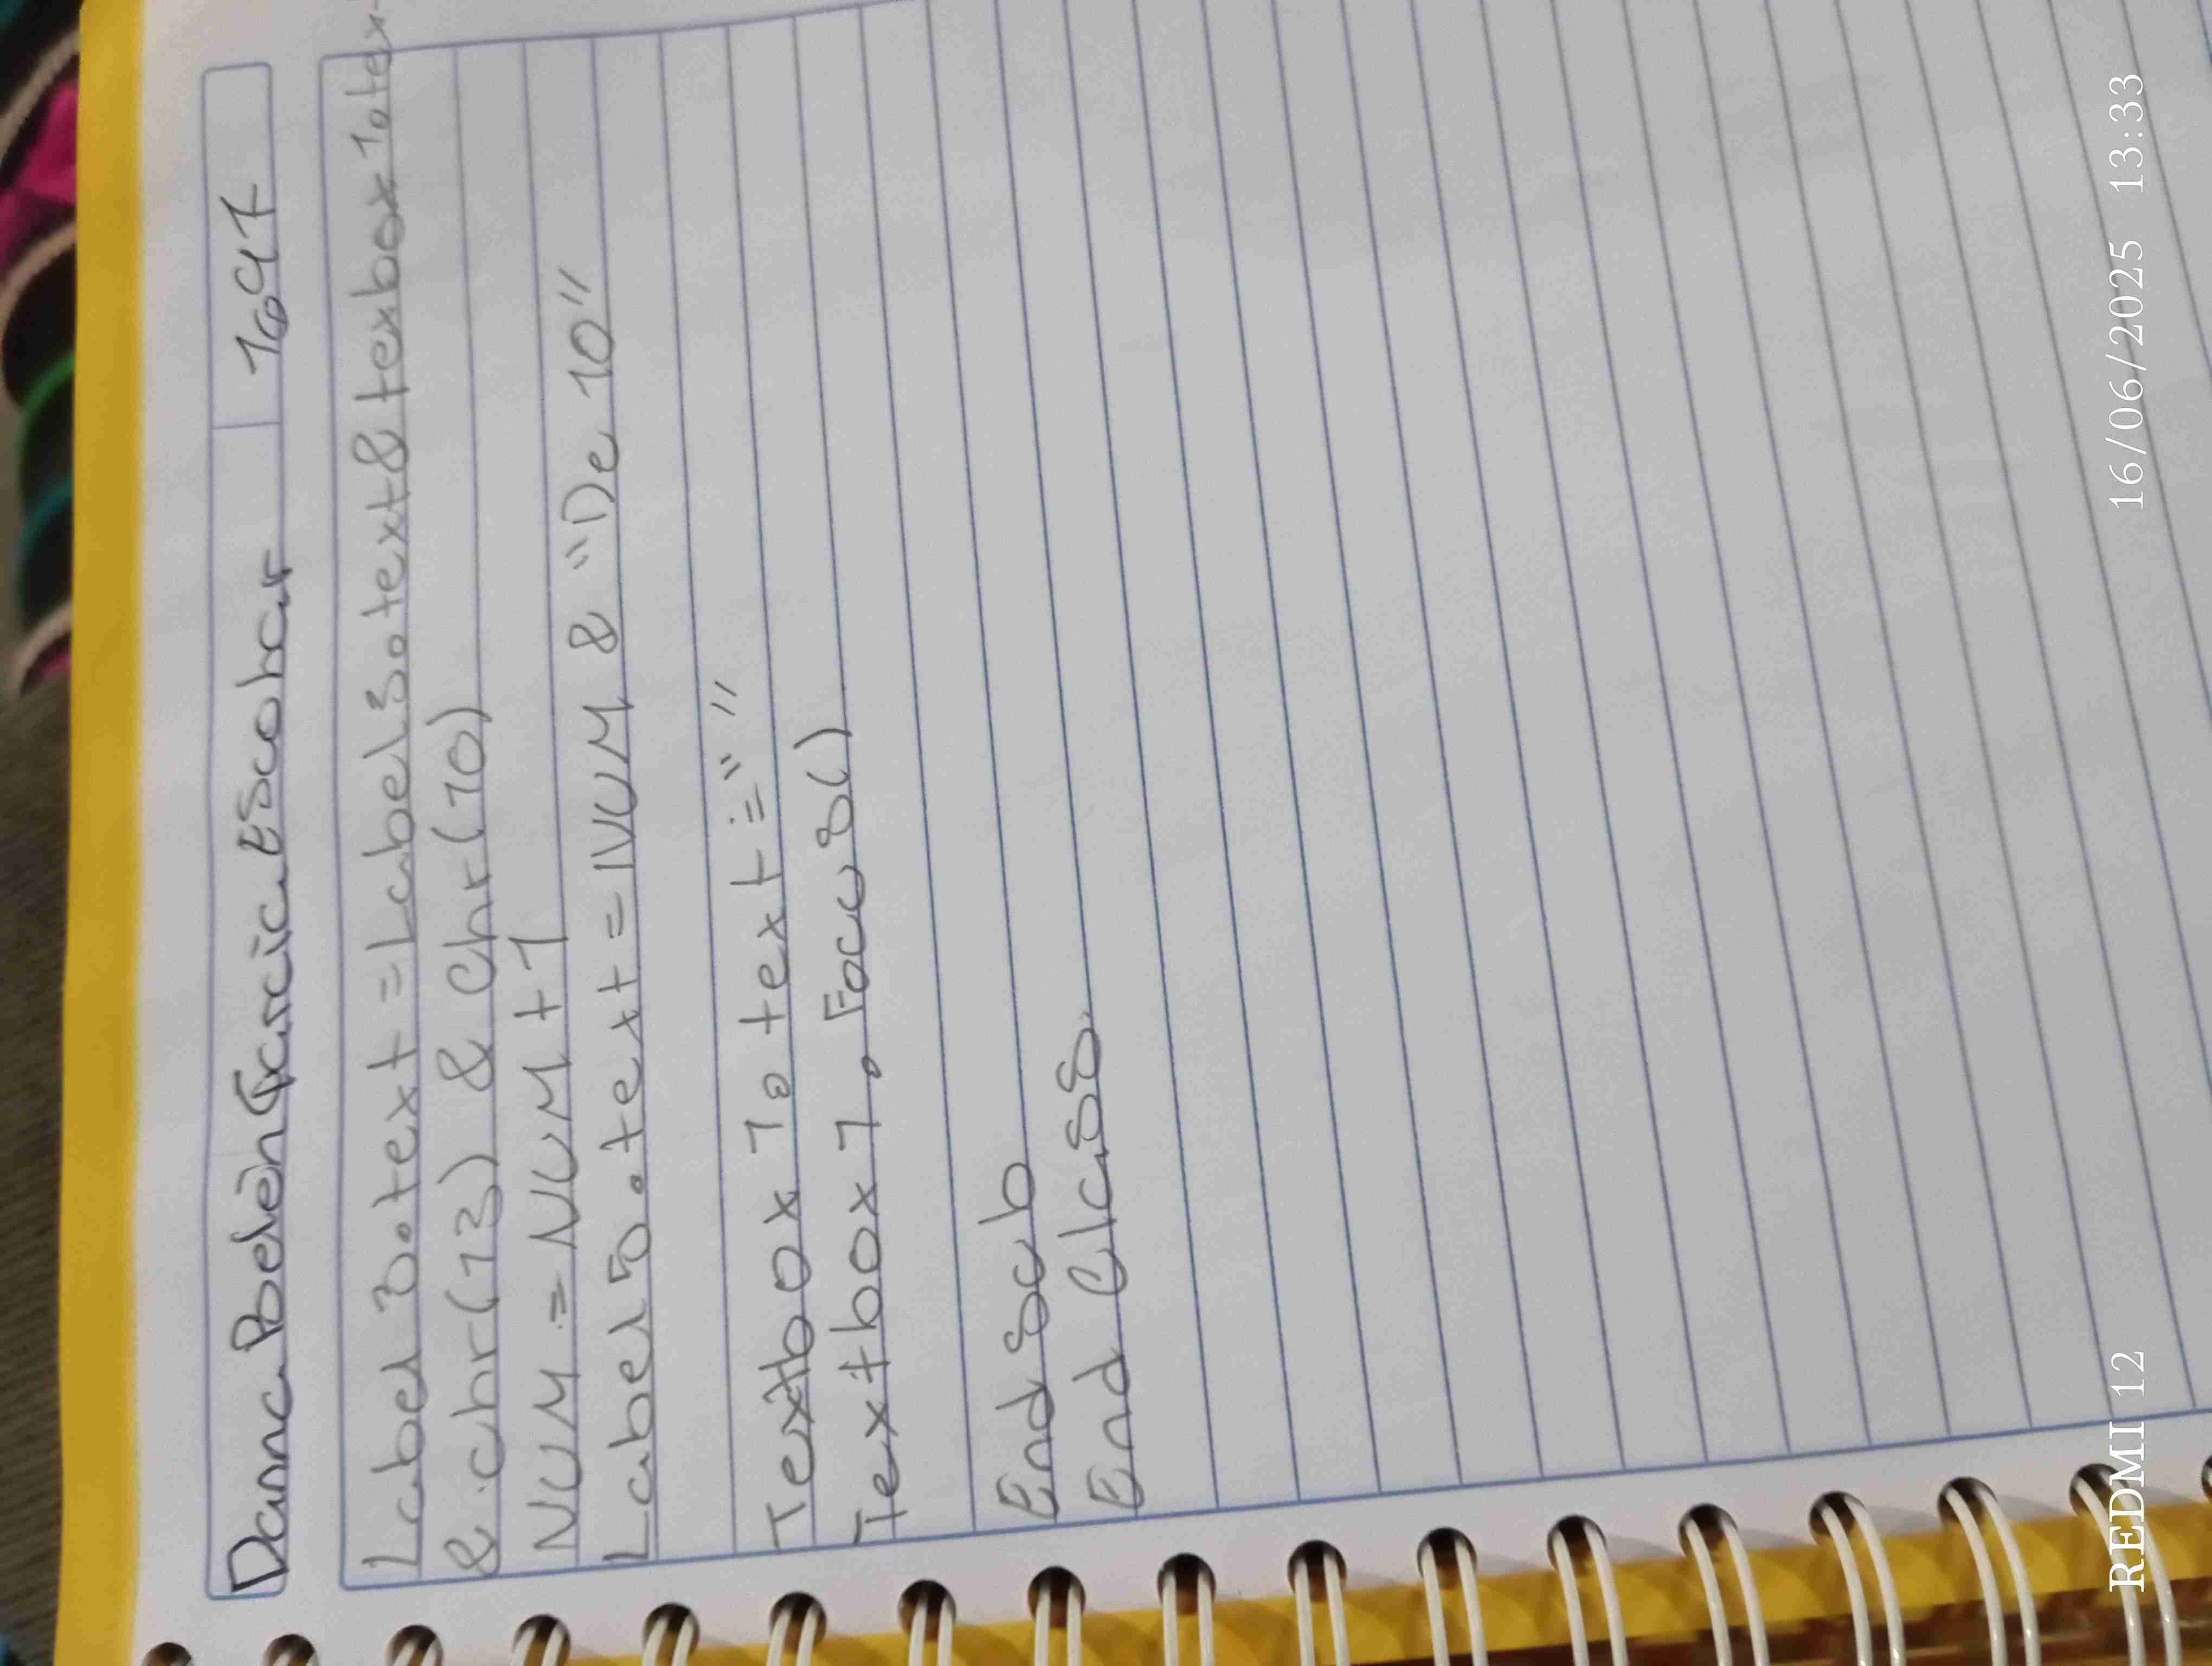 Danna Belen Garcia Escobar
Label 3.text = Label3.text & texbox1.tex
& chr(13) & Chr(10)
NUM = NUM + 1
Label5.text = NUM & "De 10"
Textbox 1. text = " "
Textbox 1. Focus()
End sub
End Class
REDMI 12 16/06/2025 13:33